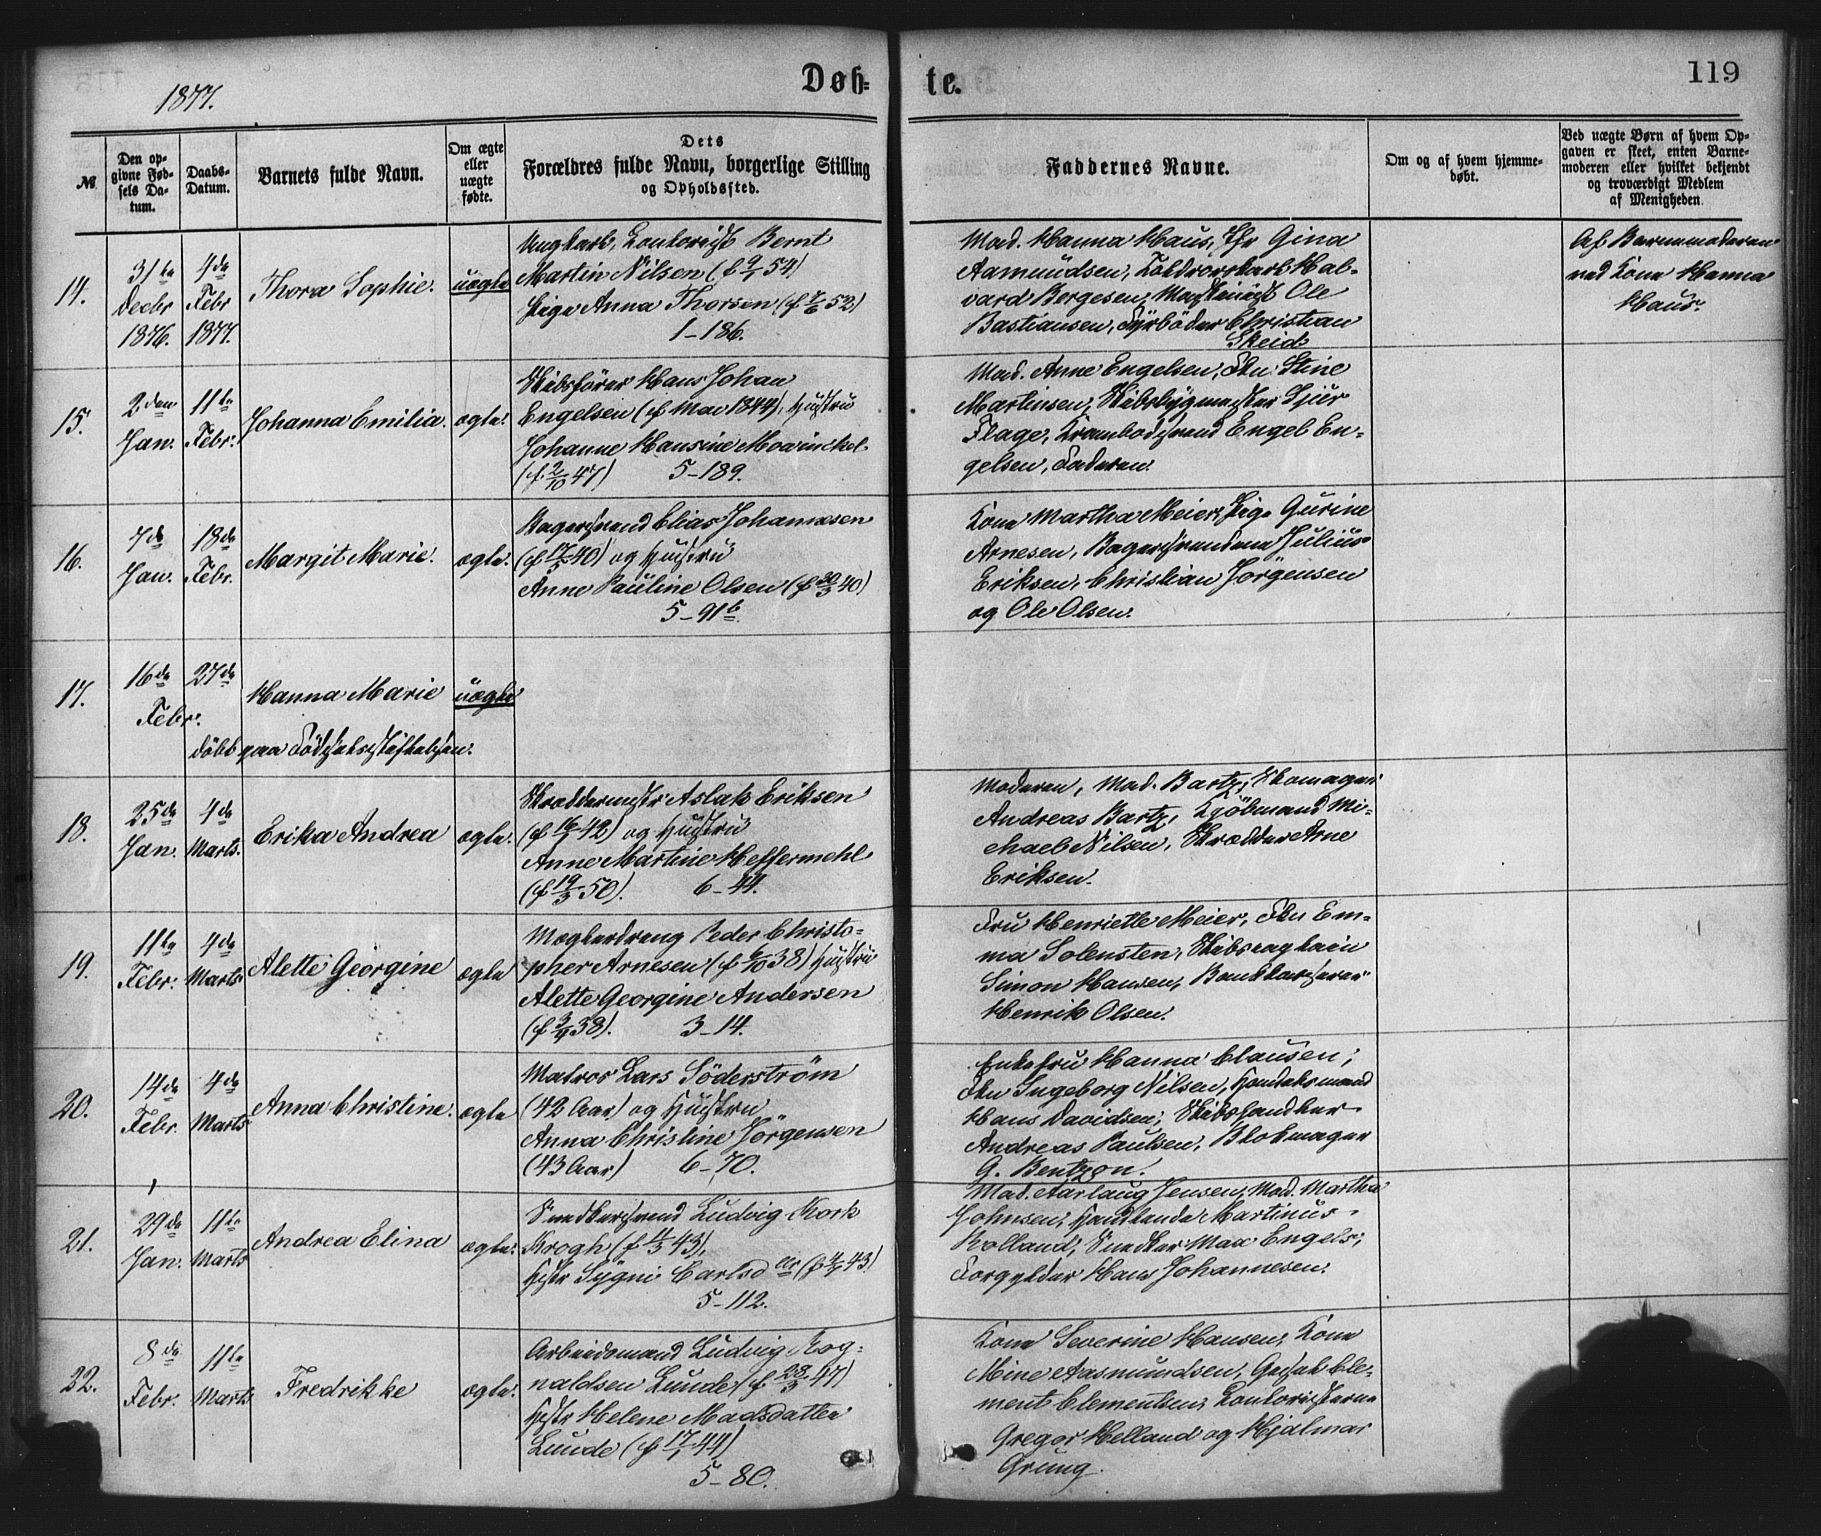 1877.
Døb=
te.
119
№
Den op-
givne Fød-
sels Da-
tum.
Daabs-
Datum.
Barnets fulde Navn.
Om ægte
eller
uægte
fødte.
Dets
Forældres fulde Navn, borgerlige Stilling
og Opholdssted.
Faddernes Navne.
Om og af hvem hjemme-
døbt.
Ved uægte Børn af hvem Op-
gaven er skeet, enten Barne-
moderen eller hvilket bekjendt
og troværdigt Medlem
af Menigheden.
14.
31te
Decbr
1876.
4de
Febr
1877.
Thora Sophie.
uægte
Ungkarl, Kontorist Bernt
Martin Nilsen (f 9/1 54)
Pige Anna Thorsen (f 7/6 52)
1-186.
Mad. Hanna Haus, Jfr Gina
Aamundsen, Toldrorskarl Hal-
vard Bergesen, Maskinist Ole
Bastiansen, Fyrböder Christian
Skeid.
Af Barnemoderen
ved Kone Hanna
Haus.
15.
2den
Jan.
11te
Febr.
Johanna Emilia.
ægte.
Skibsförer Hans Johan
Engelsen (f Mai 1844), Hustru
Johanne Hansine Mowinckel
(f. 2/10 47) 5-189.
Mad. Anne Engelsen, Frk. Stine
Martinsen, Skibsbygmester Sjur
Flage, Krambodsvend Engel En-
gelsen, Faderen.
16.
7de
Jan.
18de
Febr.
Margit Marie.
ægte.
Bagersvend Elias Johannesen
(f 17/5 40) og Hustru
Anne Pauline Olsen (f 30/3 40)
5-91b.
Kone Martha Meier, Pige Gurine
Arnesen, Bagersvendene Julius
Eriksen, Christian Jörgensen
og Ole Olsen.
17.
16de
27de
Febr.
Hanna Marie
uægte
döbt paa Födselsstiftelsen.
18.
25de
Jan.
4de
Marts.
Erika Andrea
ægte.
Skræddermestr Aslak Eriksen
(f 16/2 42) og Hustru
Anne Martine Heffermehl
(f 19/3 50). 6-44.
Moderen, Mad. Bartz, Skomager
Andreas Bartz, Kjöbmand Mi-
chael Nilsen, Skrædder Arne
Eriksen.
19.
11te
Febr.
4de
Marts.
Alette Georgine
ægte
Mæglerdreng Peder Christo-
pher Arnesen (f 6/10 38) Hustru
Alette Georgine Andersen
(f 3/9 38). 3-14.
Fru Henriette Meier, Frk Em-
ma Solensten, Skibscaptain
Simon Hansen, Bankkasserer
Henrik Olsen.
20.
14de
Febr.
4de
Marts
Anna Christine.
ægte
Matros Lars Söderström
(42 Aar) og Hustru
Anna Christine Jörgensen
(43 Aar) 6-70.
Enkefru Hanna Clausen,
Frk Ingeborg Nilsen, Handelsmand
Hans Davidsen, Skibshandler
Andreas Paulsen, Blokmager
G. Bentzon.
21.
29de
Jan.
11te
Marts
Andrea Elina
ægte.
Snedkersvend Ludvig Kork
Krogh (f 11/3 43),
Hstr Sygni Carlsdttr (f 4/7 43)
5-112.
Mad. Aarlaug Jensen, Mad. Martha
Johnsen, Handlende Martinus
Rolland, Snedker Max Engels,
Forgylder Hans Johannesen.
22.
8de
Febr.
11te
Marts
Fredrikke
ægte.
Arbeidsmand Ludvig Rog-
naldsen Lunde (f 28/3 47)
Hstr Helene Madsdatter
Lunde (f 17/1 44)
5-80.
Kone Severine Hansen, Kone
Mine Aasmundsen, Gesel Cle-
ment Clementsen, Kontoristerne
Gregor Helland og Hjalmar
Grung.